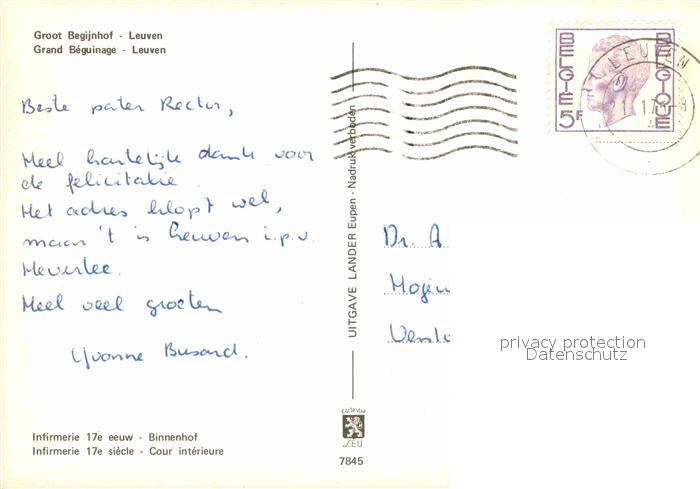 Groot Begijnhof - Leuven
Grand Béguinage - Leuven
BELGIE
BELGIQUE
5F
LEUVEN
Beste pater Rector,
Heel hartelijk dank voor
de felicitatie.
Het adres klopt wel,
maar 't is Leuven i.p.v.
Heverlee.
Heel veel groeten
Yvonne Busard.
UITGAVE LANDER Eupen - Nadruk verboden
Dr. A
privacy protection
Datenschutz
Infirmerie 17e eeuw - Binnenhof
Infirmerie 17e siècle - Cour intérieure
7845